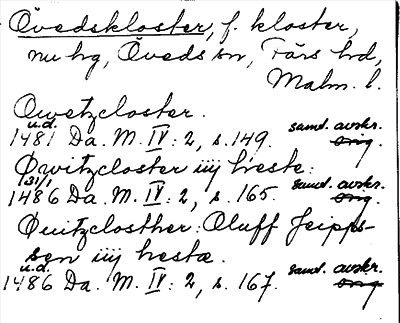 Övedskloster, f. kloster,
nu hg, Öveds sn, Färs hd,
Malm. l.
Øwetzcloster.
u.d. samt. avskr.
1481 Da. M. IV: 2, s. 149. orig.
Øwitzcloster iiij heste:
31/1 samt. avskr.
1486 Da. M. IV: 2, s. 165. orig.
Øuitzclosther: Oluff Jeipps-
sen iiij hestæ.
u.d. samt. avskr.
1486 Da. M. IV: 2, s. 167. orig